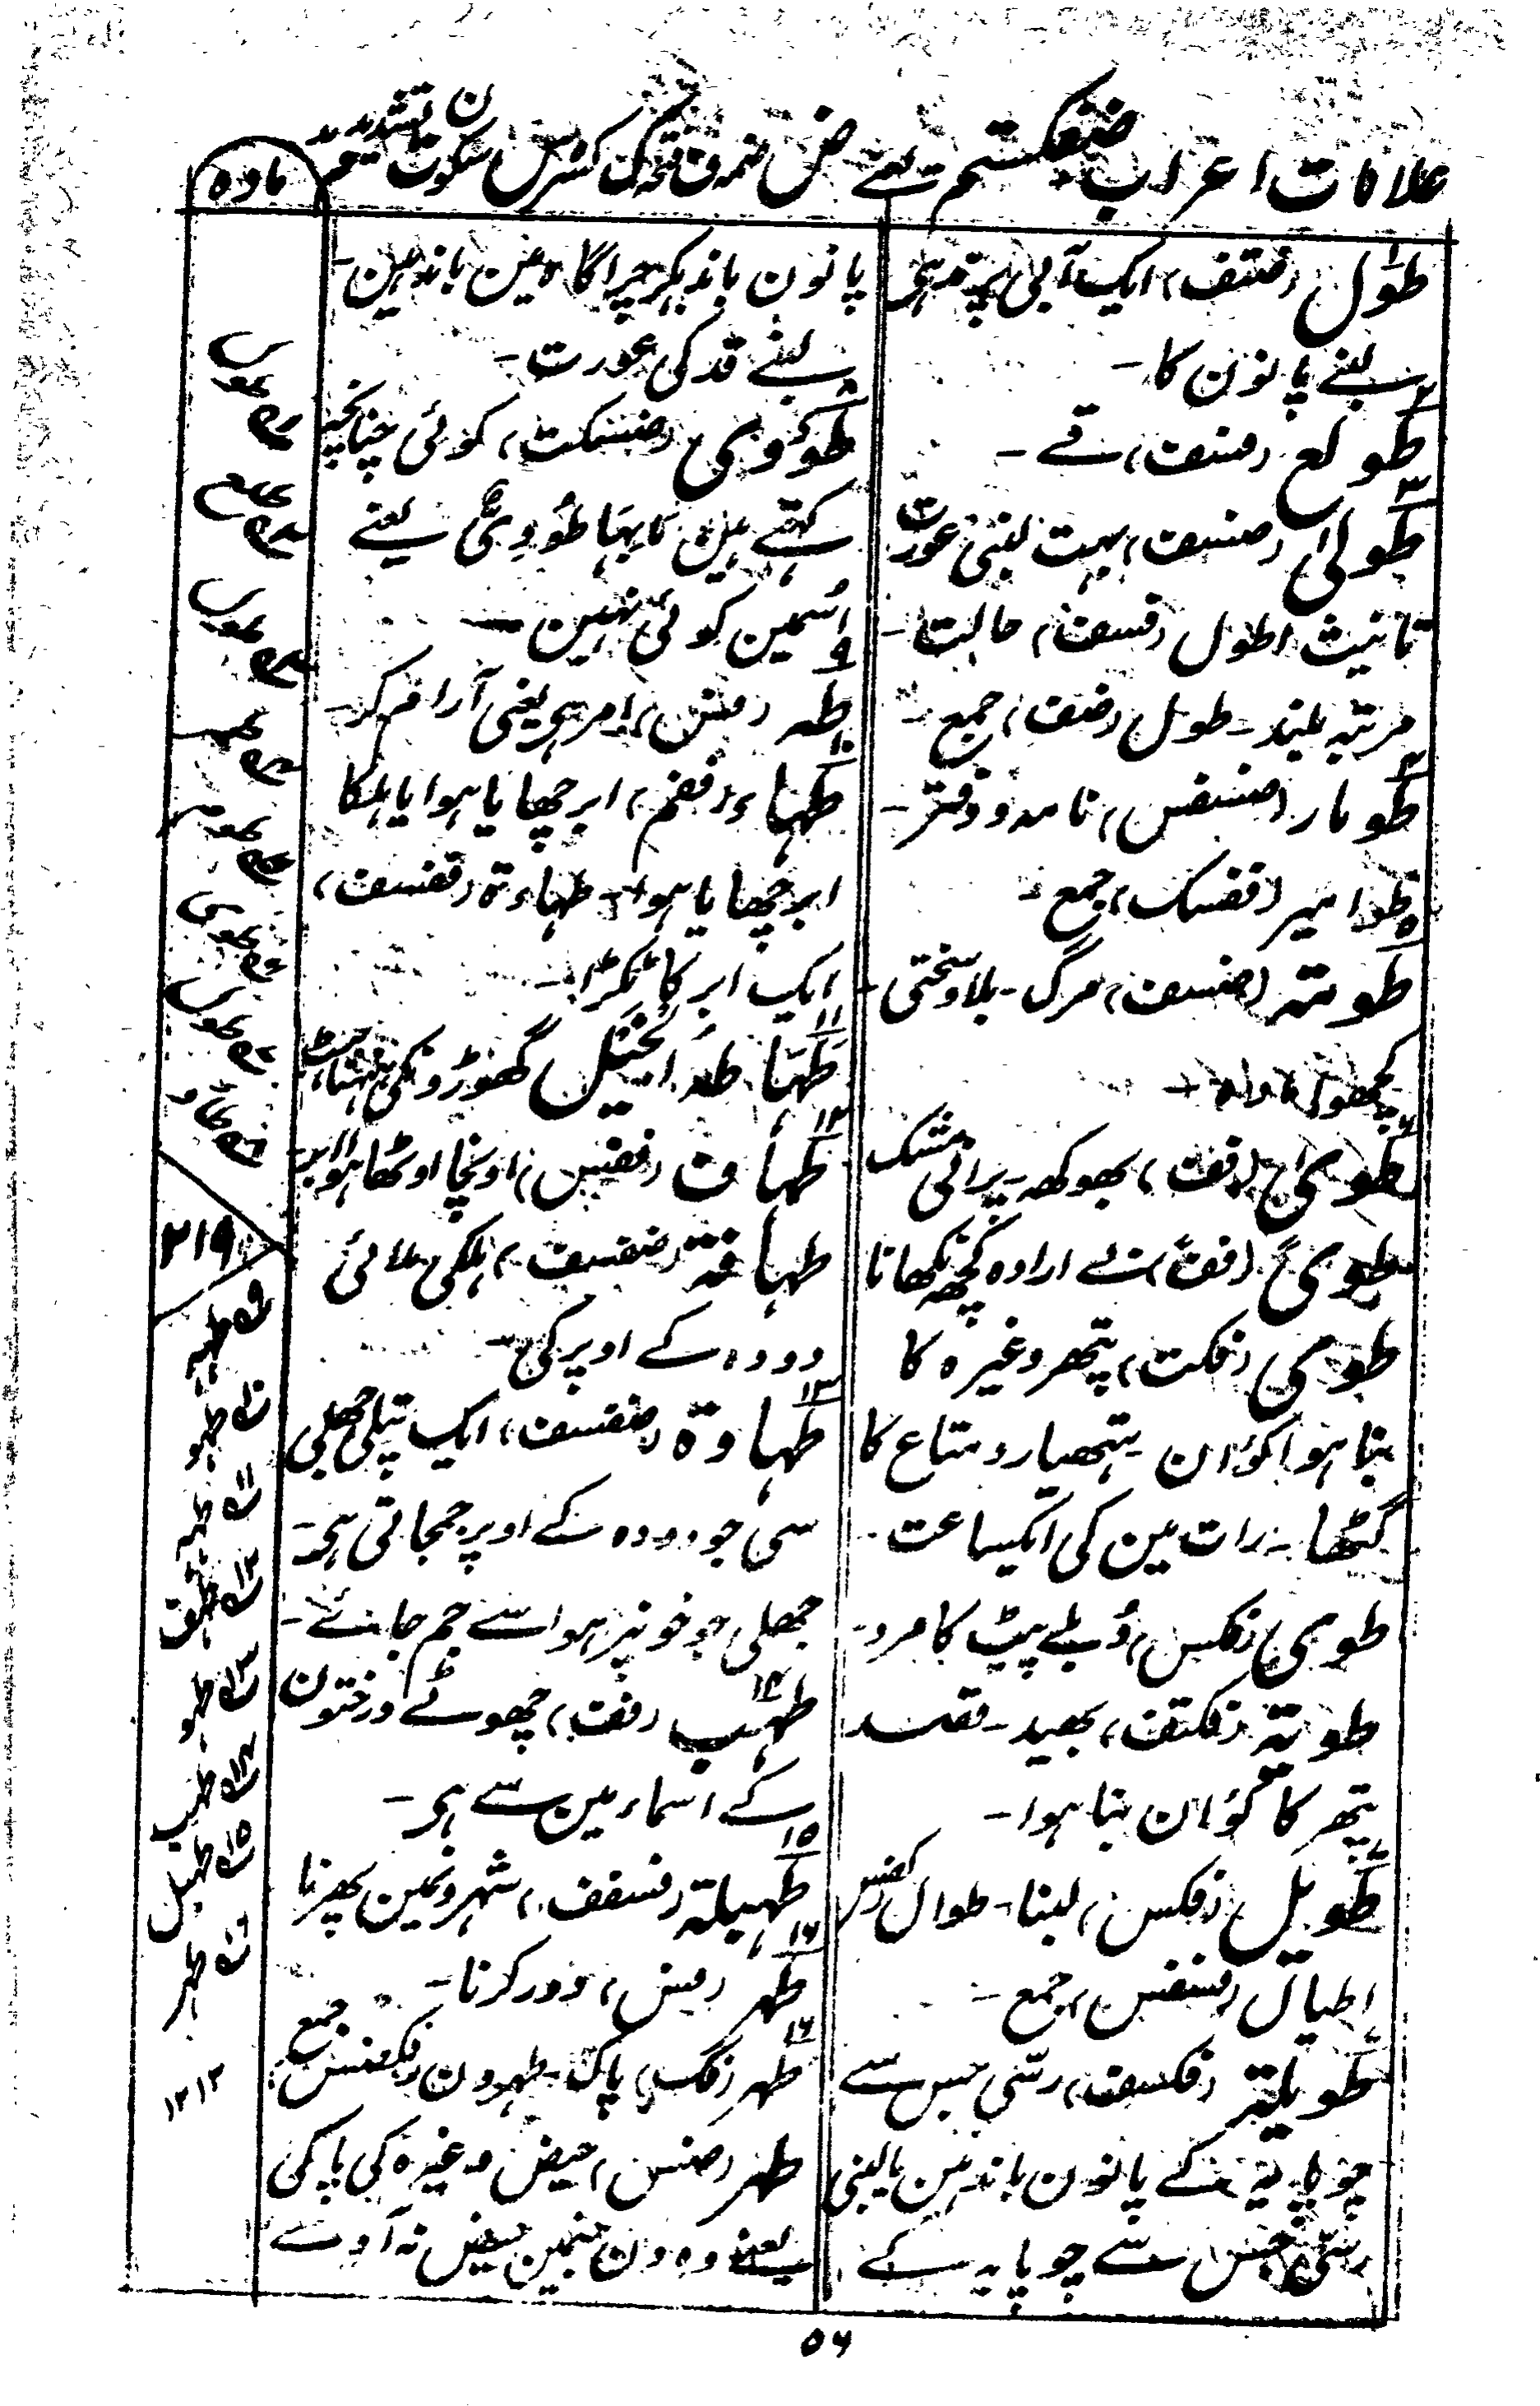 علامات اعراب ضفكستم یعنے ض ضمہ ف فتحہ ک کسرہ س سکون ت تشدید
مادہ
طول (ضتف) ایک آبی پرند ہی
لنبے پانون کا۔
طولع (ضسف) قے۔
طولی (ضسف) بہت لنبی عورت
تانیث اطول (فسف) حالت۔
مرتبہ بلند۔ طول (ضف) جمع۔
طومار (ضسفس) نامہ و دفتر۔
طوامیر (ففسک) جمع۔
طومتہ (ضسف) مرگ۔ بلا و سختی۔
کچھوی مادہ۔
طوی (فف) بھوکھ۔ پرانی مشک
طوی (فف) بے ارادہ کچھ نکھانا
طوی (فکت) پتھر وغیرہ کا
بنا ہوا کوان۔ ہتھیار و متاع کا
گٹھا۔ رات مین کی ایکساعت۔
طوی (فکس) دُبلے پیٹ کا مرد۔
طویۃ (فکتف) بھید۔ قصد
پتھر کا کوان بنا ہوا۔
طویل (فکس) لنبا۔ طوال (کفس)
اطیال (فسفس) جمع۔
طویلتہ (فکسف) رسّی جس سے
چوپایہ کے پانون باندہین یا لنبی
رسّی جس سے چوپایہ کے
پانون باندہکر چراگاہ مین باندہین۔
لنبے قد کی عورت۔
طوٗوی (ضسکت) کوئی چنانچہ
کہتے ہین مَا بِہَا طُوٗوِیٌّ یعنے
اُسمین کوئی نہین۔
طہ (فس) امر ہی یعنی آرام کر۔
طہاء (ففم) ابر چھایا ہوا یا ہلکا
ابر چھایا ہوا۔ طہاءۃ (ففسف)
ایک ابر کا ٹکڑا۔
طہَا طہُ الخیل گھوڑونکی ہنہناہٹ
طہاف (ففس) اونچا اوٹھا ہوا ابر۔
طہافۃ (ضفسف) ہلکی ملائی
دودہ کے اوپر کی۔
طہاوۃ (ضفسف) ایک تپلی جھلی
سی جو دودہ کے اوپر جمجاتی ہی۔
جھلی جو خونپر ہوا سے جم جائے۔
طہب (فف) چھوٹے درختون
کے اسماء مین سے ہی۔
طہیلتہ (فسفف) شہرونمین پھرنا
طہر (فس) دور کرنا۔
طہر (فک) پاک۔ طہرون (فکضس) جمع
طہر (ضس) حیض وغیرہ کی پاکی
یعنے وہ دن جنمین حیض نہ آوے
۲۱۹
۹ طہ
۱۰ طہو
۱۱ طہ
۱۲ طہف
۱۳ طہو
۱۴ طہب
۱۵ طہل
۱۶ طہر
۱۲۱۲
۵۶